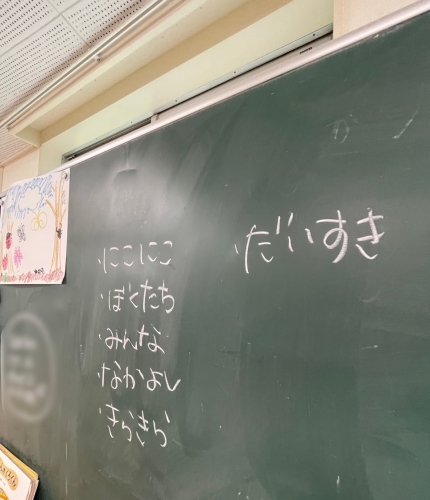 ・にこにこ
・ぼくたち
・みんな
・なかよし
・きらきら
・だいすき